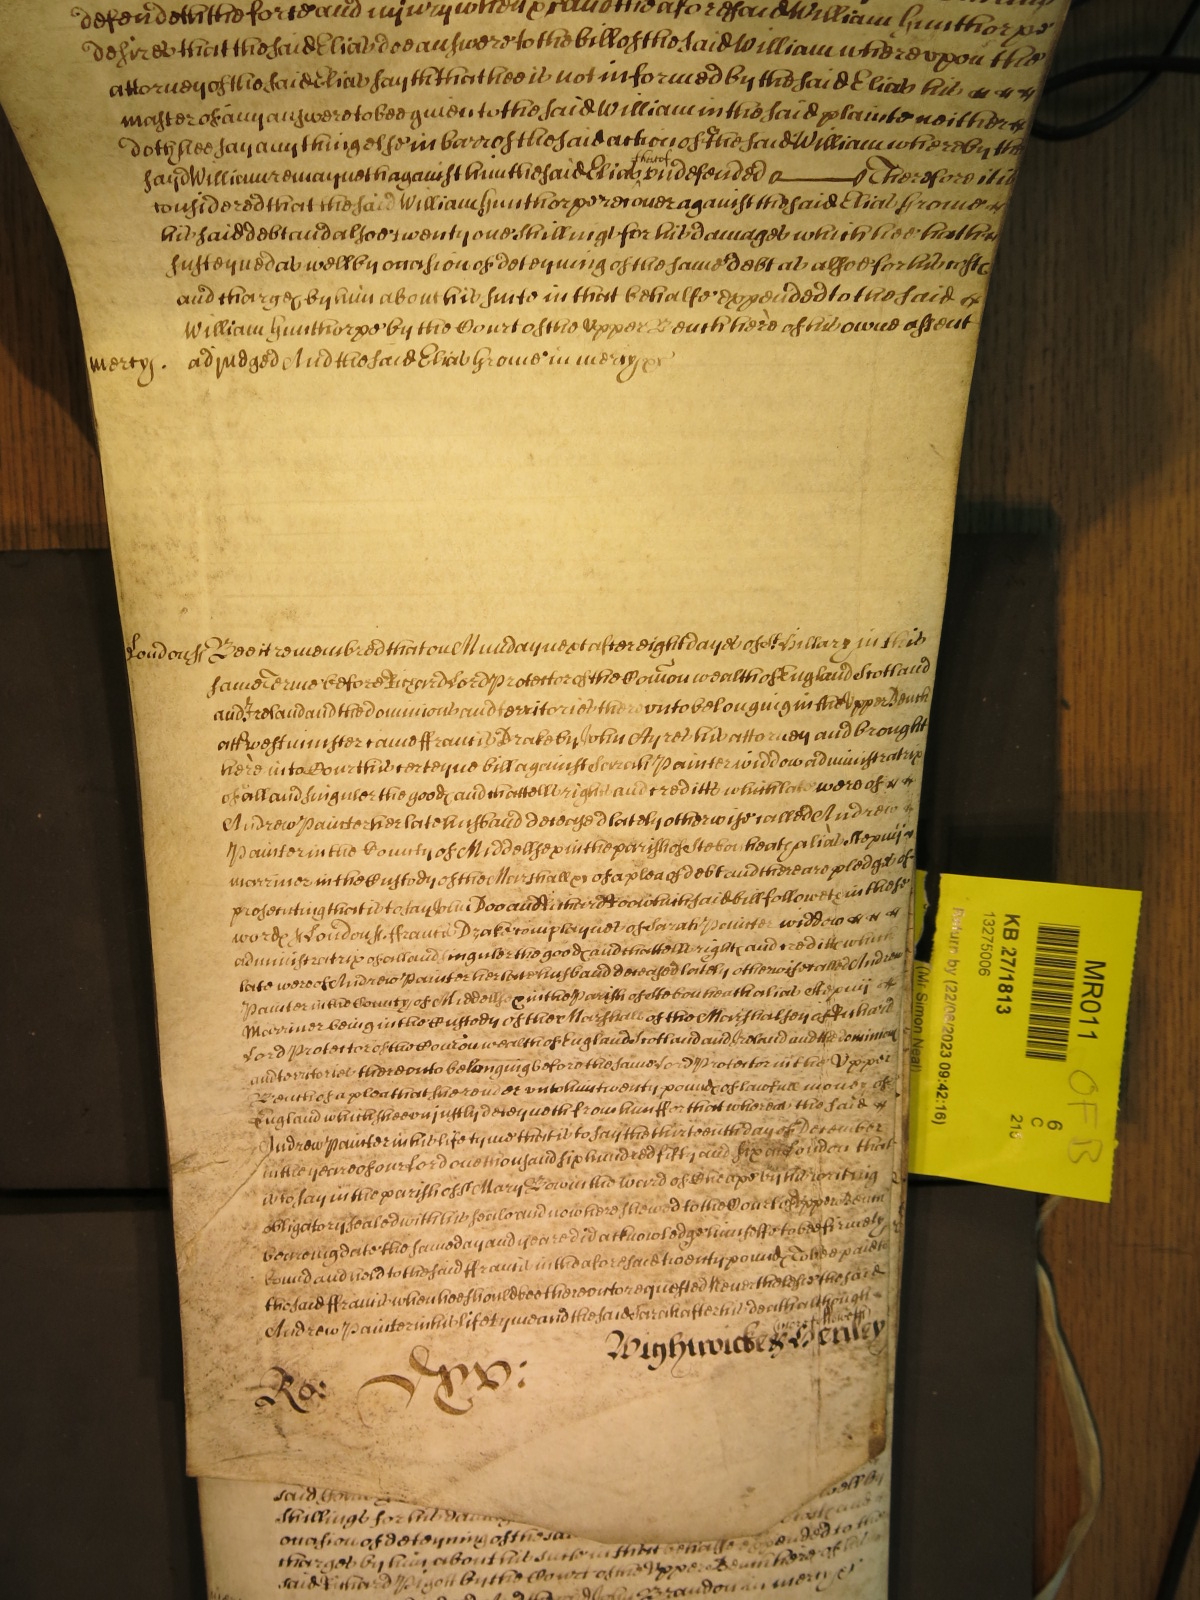 defendeth the force and injury when &c and the aforesaid William Gunthorpe
desires that the said Elias doe answere to the bill of the said William whereupon the
attorney of the said Elias sayth that hee is not informed by the said Elias his
master of any answere to bee given to the said William in the said plainte neither
doth hee say any thing else in barr of the said action of the said William whereby the
sayd William remayneth against him the said Elias thereof undefended Therefore it is
considered that the said William Gunthorpe recover against the said Elias Grome
his said debt and alsoe twenty one shillings for his damages which hee hath
susteyned as well by occasion of deteyning of the same debt as alsoe for his costs
and charges by him about his suite in that behalfe expended to the said
William Gunthorpe by the Court of the Upper Bench here of his owne assent
mercy. adjudged And the said Elias Grome in mercy &c
London ss Bee it remembred that on Munday next after eight dayes of St Hillary in this
same Terme before Richard Lord Protector of the Comon wealth of England Scotland
and Ireland and the dominions and territories thereunto belonging in the Upper Bench
att Westminster came ffrancis Drake by John Ayres his attorney and brought
here into Court his certeyne bill against Sarah Painter widdow administratrix
of all and singuler the goods and chattells rights and creditts which late were of
Andrew Painter her late husband deceased lately otherwise called Andrew
Painter in the County of Middlesex in the parish of Stebonheath alias Stepnij
marriner in the Custody of the Marshall &c of a plea of debt and there are pledges of
prosecuting that is to say John Doo and Richard Roo which said bill followeth in these
words ss London ss ffrancis Drake complaynes of Sarah Painter widdow
administratrix of all and singuler the goods and chattells rights and creditts which
late were of Andrew Painter her late husband deceased lately otherwise called Andrew
Painter in the County of Middlesex in the Parish of Stebonheath alias Stepnij
Marriner being in the Custody of the Marshall of the Marshalsey of Richard
Lord Protector of the Comon wealth of England Scotland and Ireland and the dominions
and territories thereonto belonging before the same Lord Protector in the Upper
Bench of a plea that she render unto him twenty pounds of lawfull money of
England which shee unjustly deteyneth from him ffor that whereas the said
Andrew Painter in his life tyme that is to say the thirteenth day of December
in the yeare of our Lord one thousand six hundred fifty and six at London that
is to say in the parish of St Mary Bow in the ward of Cheape by his writing
obligatory sealed with his seale and now here shewed to the Court of Upper Bench
beareing date the same day and yeare did acknowledge himselfe to bee firmely
bound and held to the said ffrancis in the aforesaid twenty pounds To bee paid to
the said ffrancis when hee should bee thereonto requested Neverthelesse the said
Andrew Painter in his life tyme and the said Sarah after his death although
more followeth
Wightwicke & Henley
Ro: xv:
said
shillings for his
occasion of deteyning of the
charges by him about his suite in that behalfe expended to the
said Richard Pigott by the Court of the Upper Bench here of his
adjudged And the said John Brandon in mercy &c
MR011
KB 27/1813
13275006
Return by (22/06/2023 09:42:16)
(Mr Simon Neal)
6
C
OFB